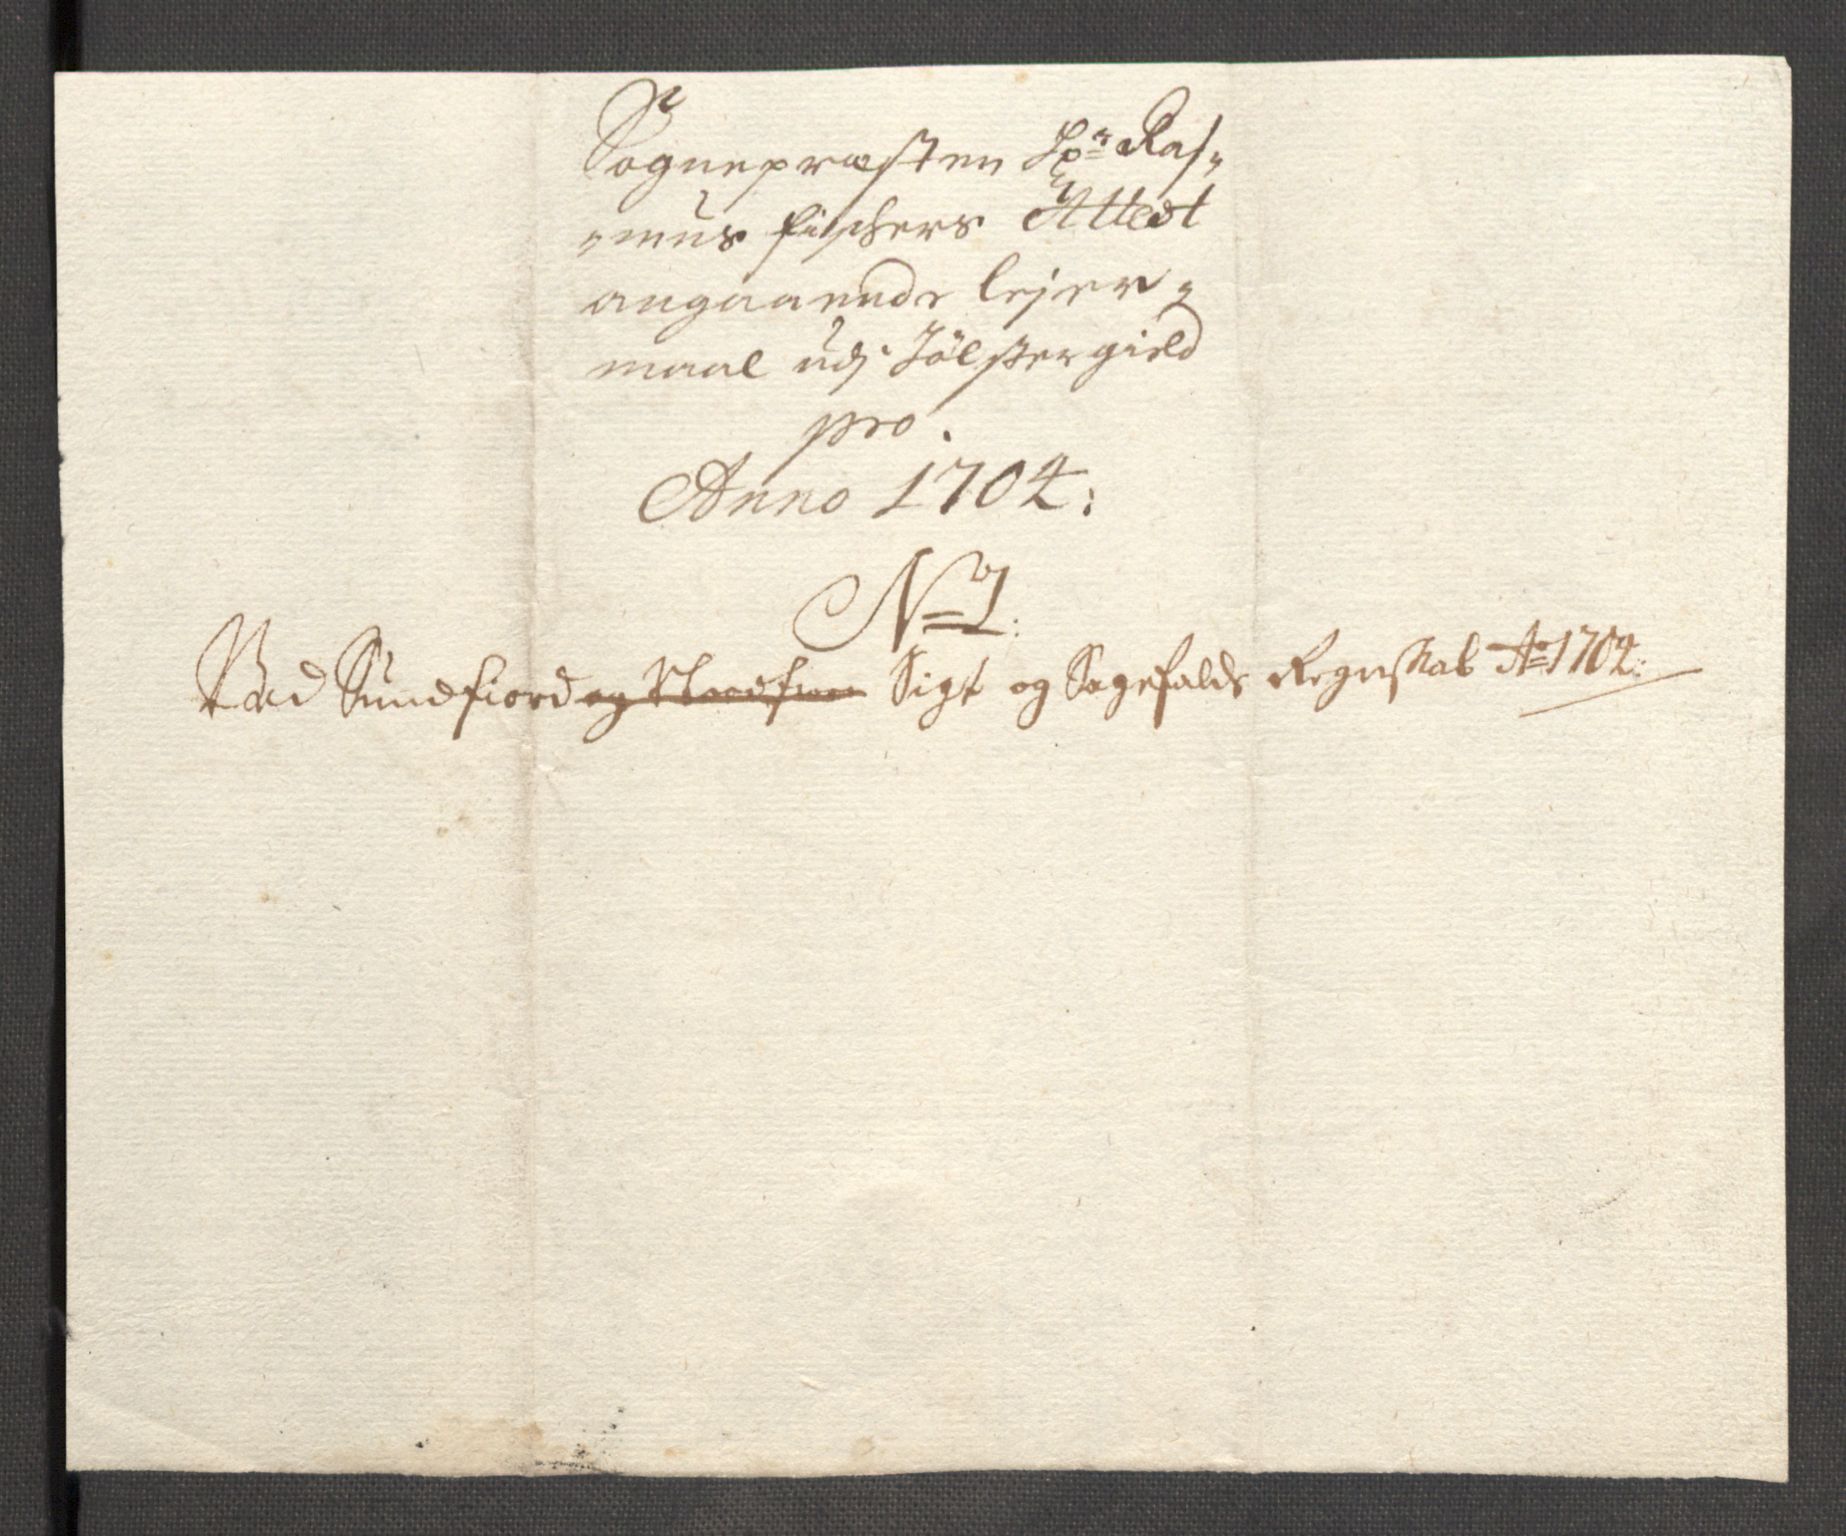 Sognepræsten Hr: Ras-
-mus fischers Attest
angaaende lejer-
maal udj Jölster gield
pro.
Anno 1704:
No 1:
Ved Sundfiord og Nordfior Sigt og Sagefalds Regnskab Ao 1704: